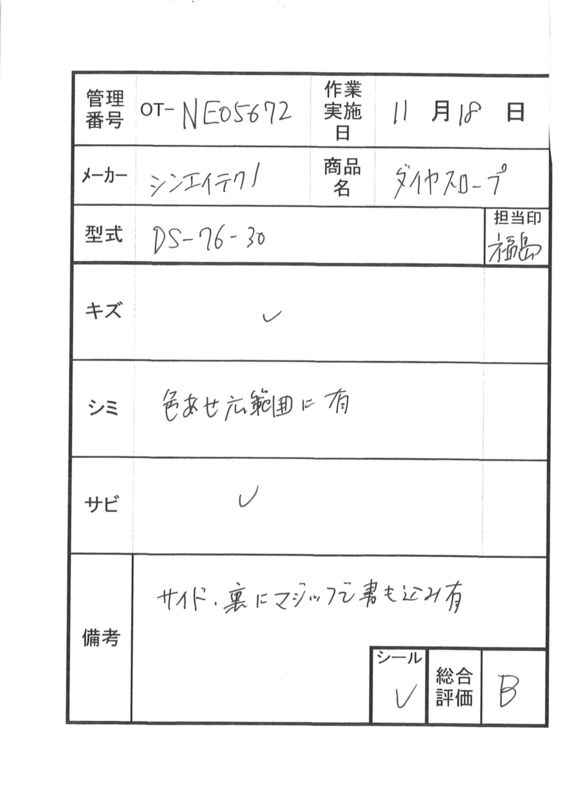 管理番号 OT- NE05672 作業実施日 11 月 18 日
メーカー シンエイテクノ 商品名 ダイヤスロープ
型式 DS-76-30 担当印 福島
キズ ✓
シミ 色あせ広範囲に有
サビ ✓
備考 サイド、裏にマジックで書き込み有
シール ✓ 総合評価 B